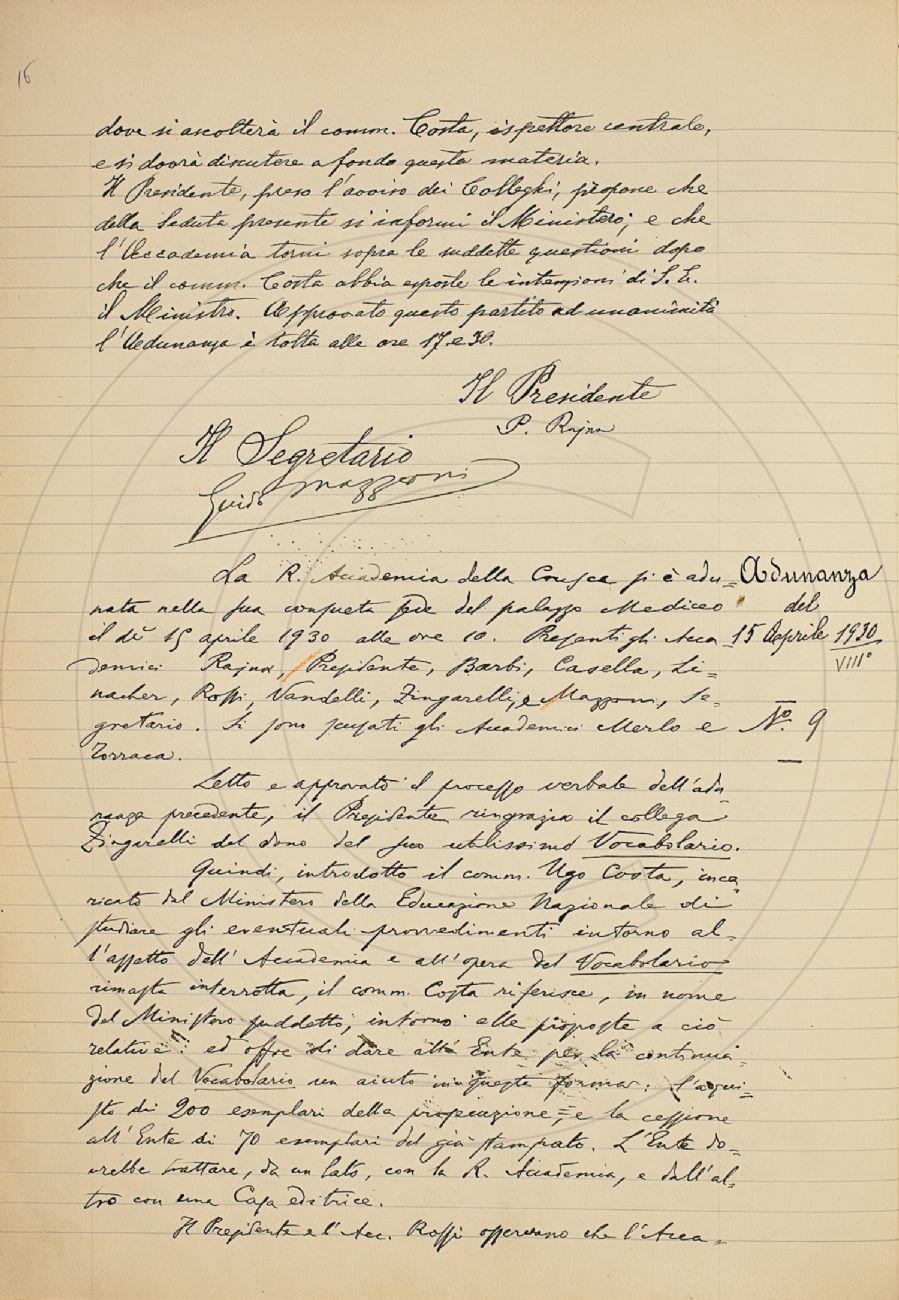 16
dove si ascolterà il comm. Costa, ispettore centrale,
e si dovrà discutere a fondo questa materia.
Il Presidente, preso l'avviso dei Colleghi, propone che
della Seduta presente si informi il Ministero; e che
l'Accademia torni sopra le suddette questioni dopo
che il comm. Costa abbia esposte le intenzioni di S. E.
il Ministro. Approvato questo partito ad unanimità
l'Adunanza è tolta alle ore 17 e 30.
Il Presidente
P. Rajna
Il Segretario
Guido Mazzoni
La R. Accademia della Crusca si è adu=
nata nella sua consueta sede del palazzo Mediceo
il dì 15 aprile 1930 alle ore 10. Presenti gli Acca
demici Rajna, Presidente, Barbi, Casella, Li=
nacher, Rossi, Vandelli, Zingarelli, e Mazzoni, Se=
gretario. Si sono scusati gli Accademici Merlo e
Torraca.
Adunanza
del
15 Aprile 1930
VIII°
N.° 9
Letto e approvato il processo verbale dell'adu=
nanza precedente, il Presidente ringrazia il collega
Zingarelli del dono del suo utilissimo Vocabolario.
Quindi, introdotto il comm. Ugo Costa, inca=
ricato dal Ministero della Educazione Nazionale di
studiare gli eventuali provvedimenti intorno al=
l'assetto dell'Accademia e all'opera del Vocabolario
rimasta interrotta, il comm. Costa riferisce, in nome
del Ministero suddetto, intorno alle proposte a ciò
relative: ed offre di dare all'Ente per la continua=
zione del Vocabolario un aiuto in questa forma: l'acqui=
sto di 200 esemplari della prosecuzione, e la cessione
all'Ente di 70 esemplari del già stampato. L'Ente do=
vrebbe trattare, da un lato, con la R. Accademia, e dall'al=
tro con una Casa editrice.
Il Presidente e l'Acc. Rossi osservano che l'Acca=